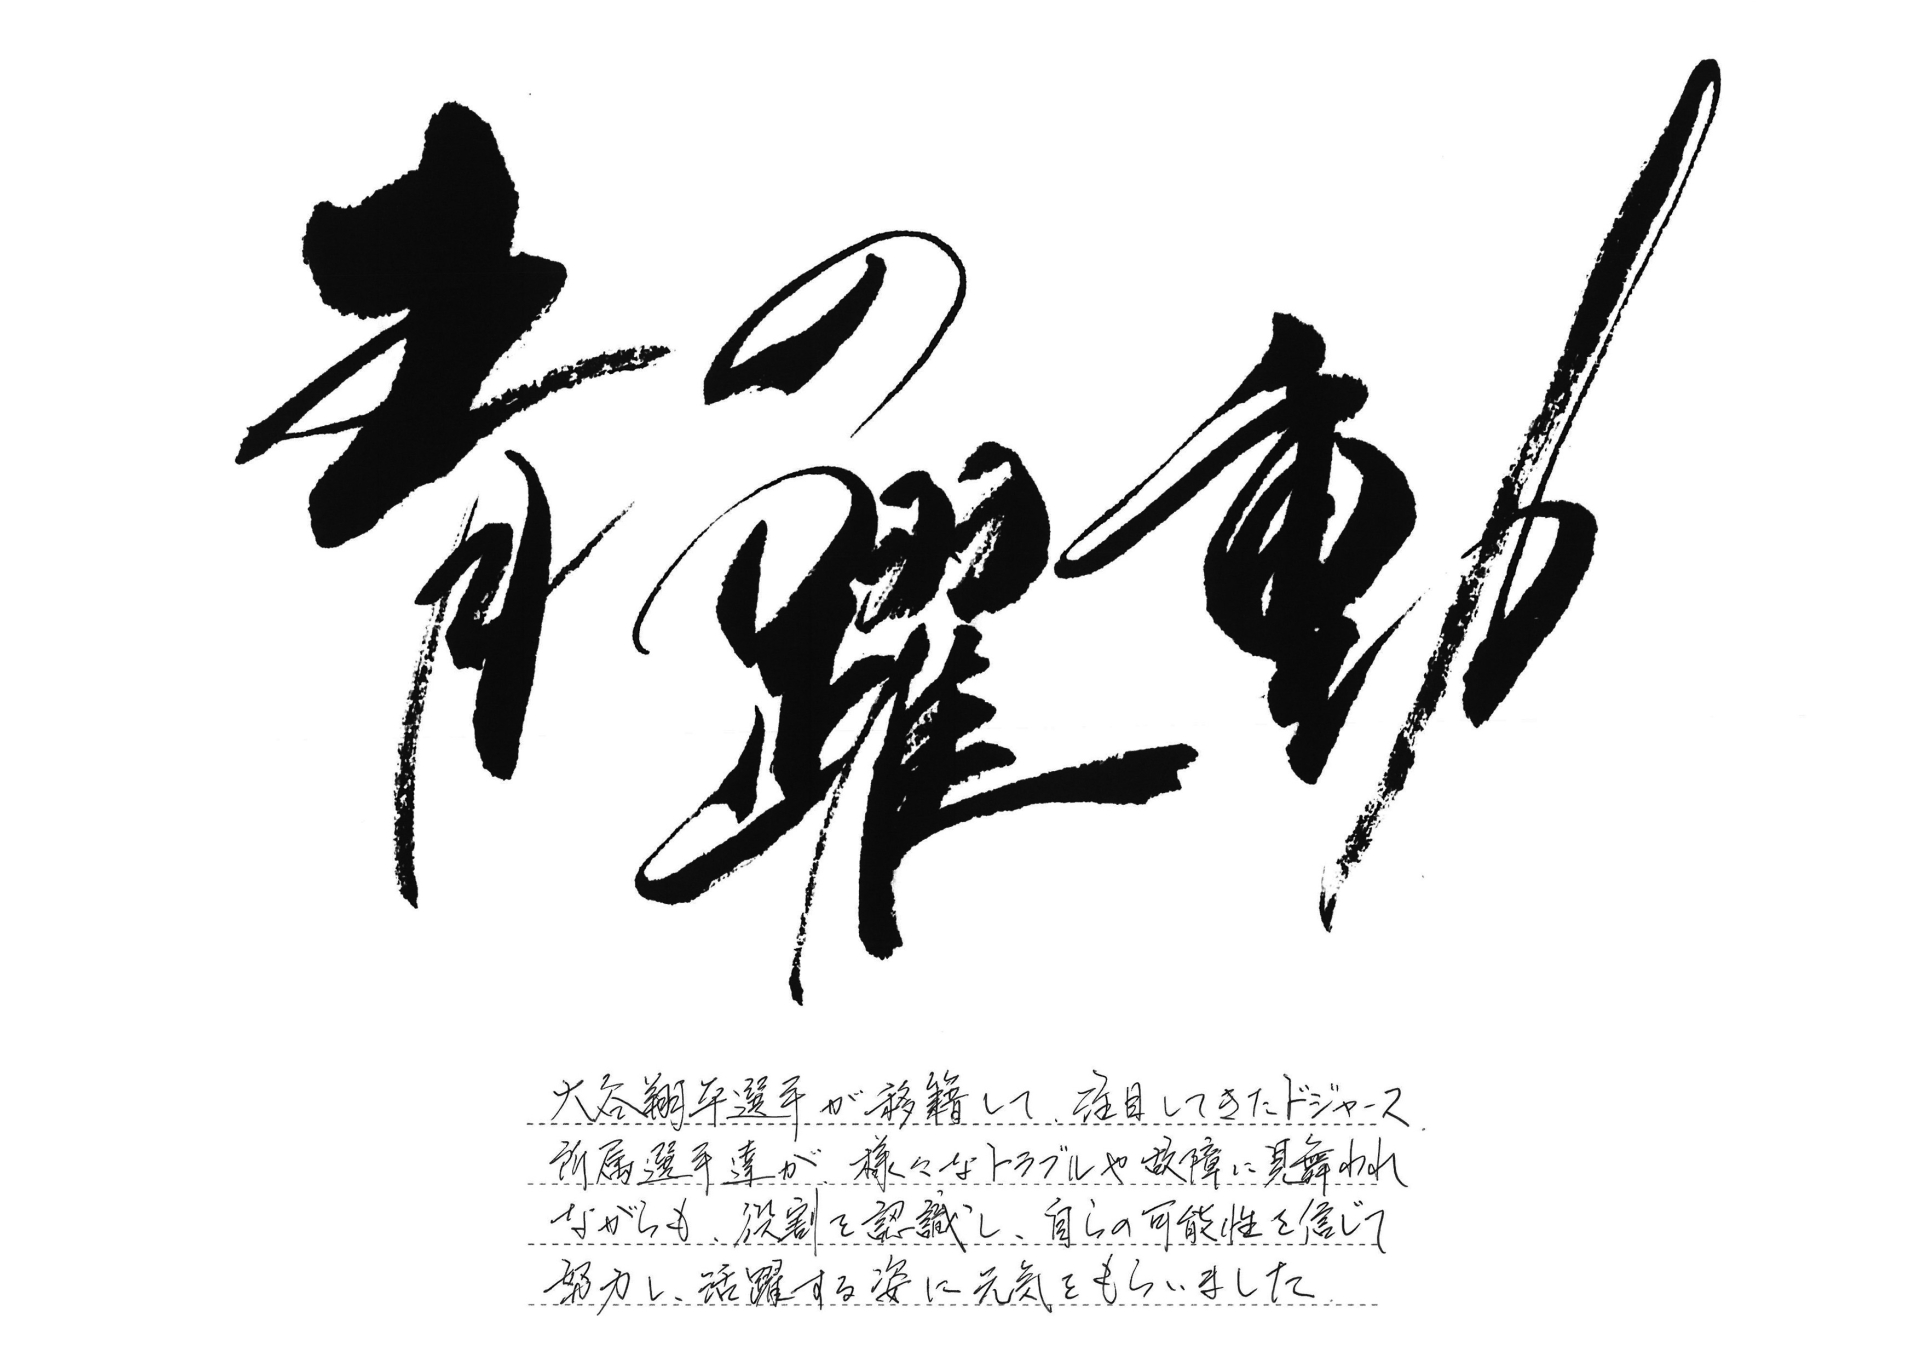 青の躍動
大谷翔平選手が移籍して、注目してきたドジャース
所属選手達が、様々なトラブルや故障に見舞われ
ながらも、役割を認識し、自らの可能性を信じて
努力し、活躍する姿に元気をもらいました。